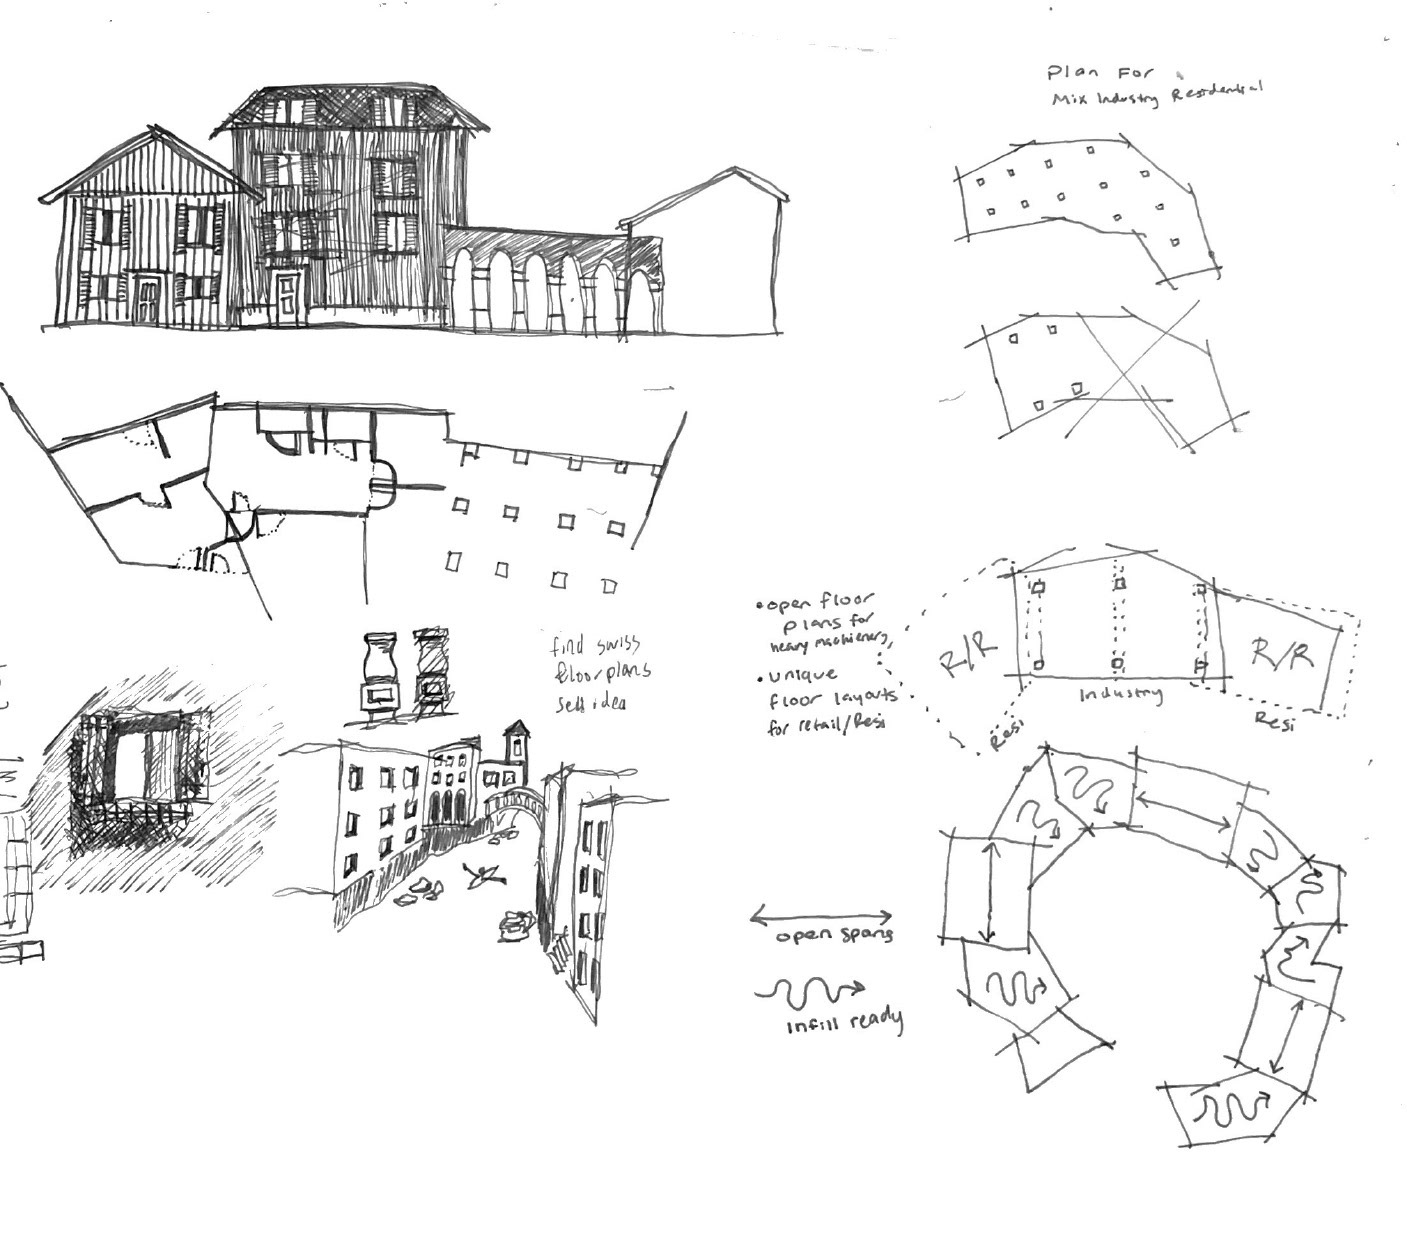 Plan For
Mix Industry Residential
• open floor
plans for
heavy machienery
• unique
floor layouts
for retail/Resi
R/R
R/R
Industry
Resi
Resi
find swiss
floorplans
sell idea
open spans
infill ready